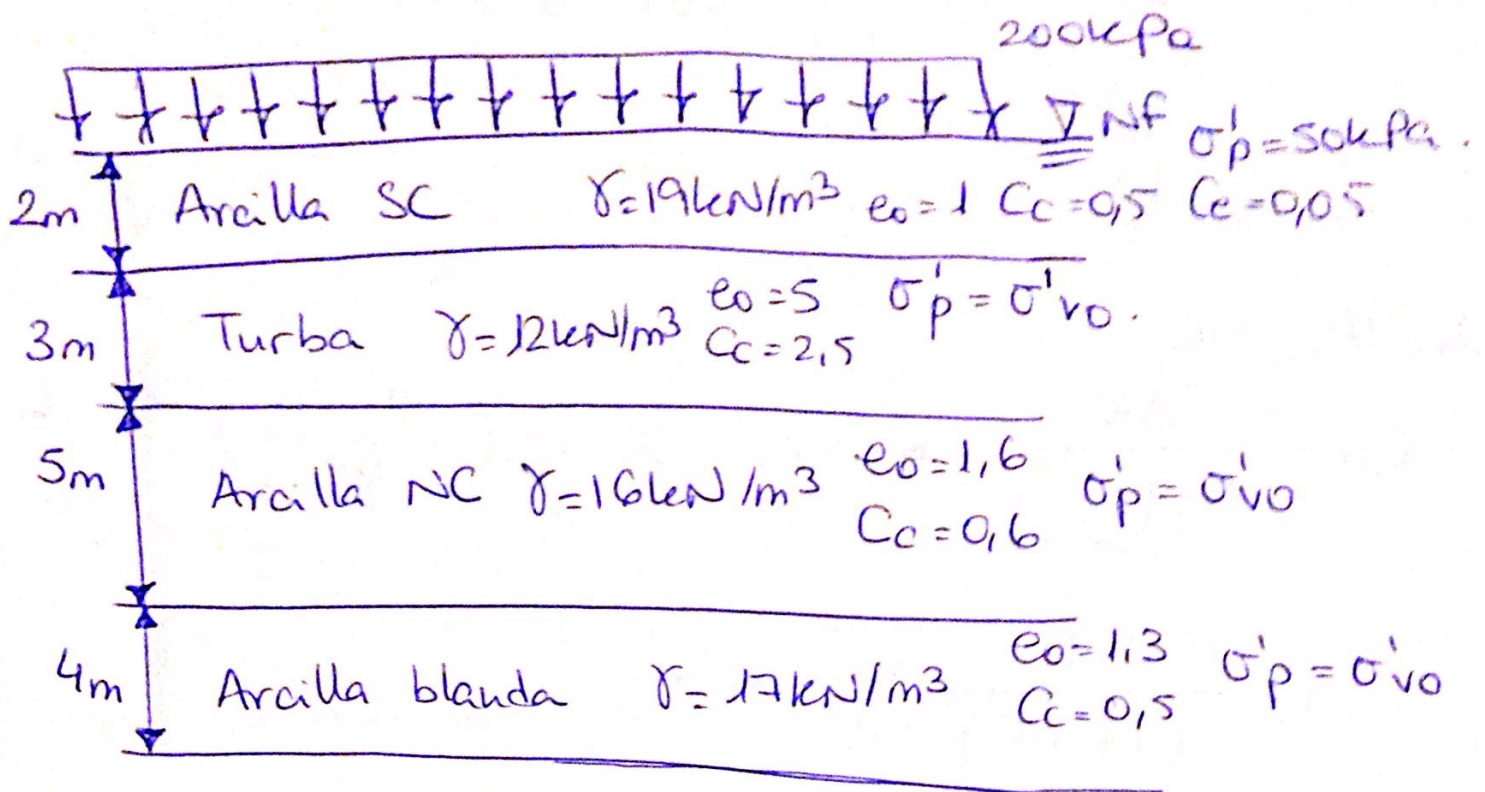 200kPa
NF σ'p=50kPa.
2m Arcilla SC γ=19kN/m³ e₀=1 Cc=0,5 Ce=0,05
3m Turba γ=12kN/m³ e₀=5 Cc=2,5 σ'p=σ'vo.
5m Arcilla NC γ=16kN/m³ e₀=1,6 Cc=0,6 σ'p=σ'vo
4m Arcilla blanda γ=17kN/m³ e₀=1,3 Cc=0,5 σ'p=σ'vo